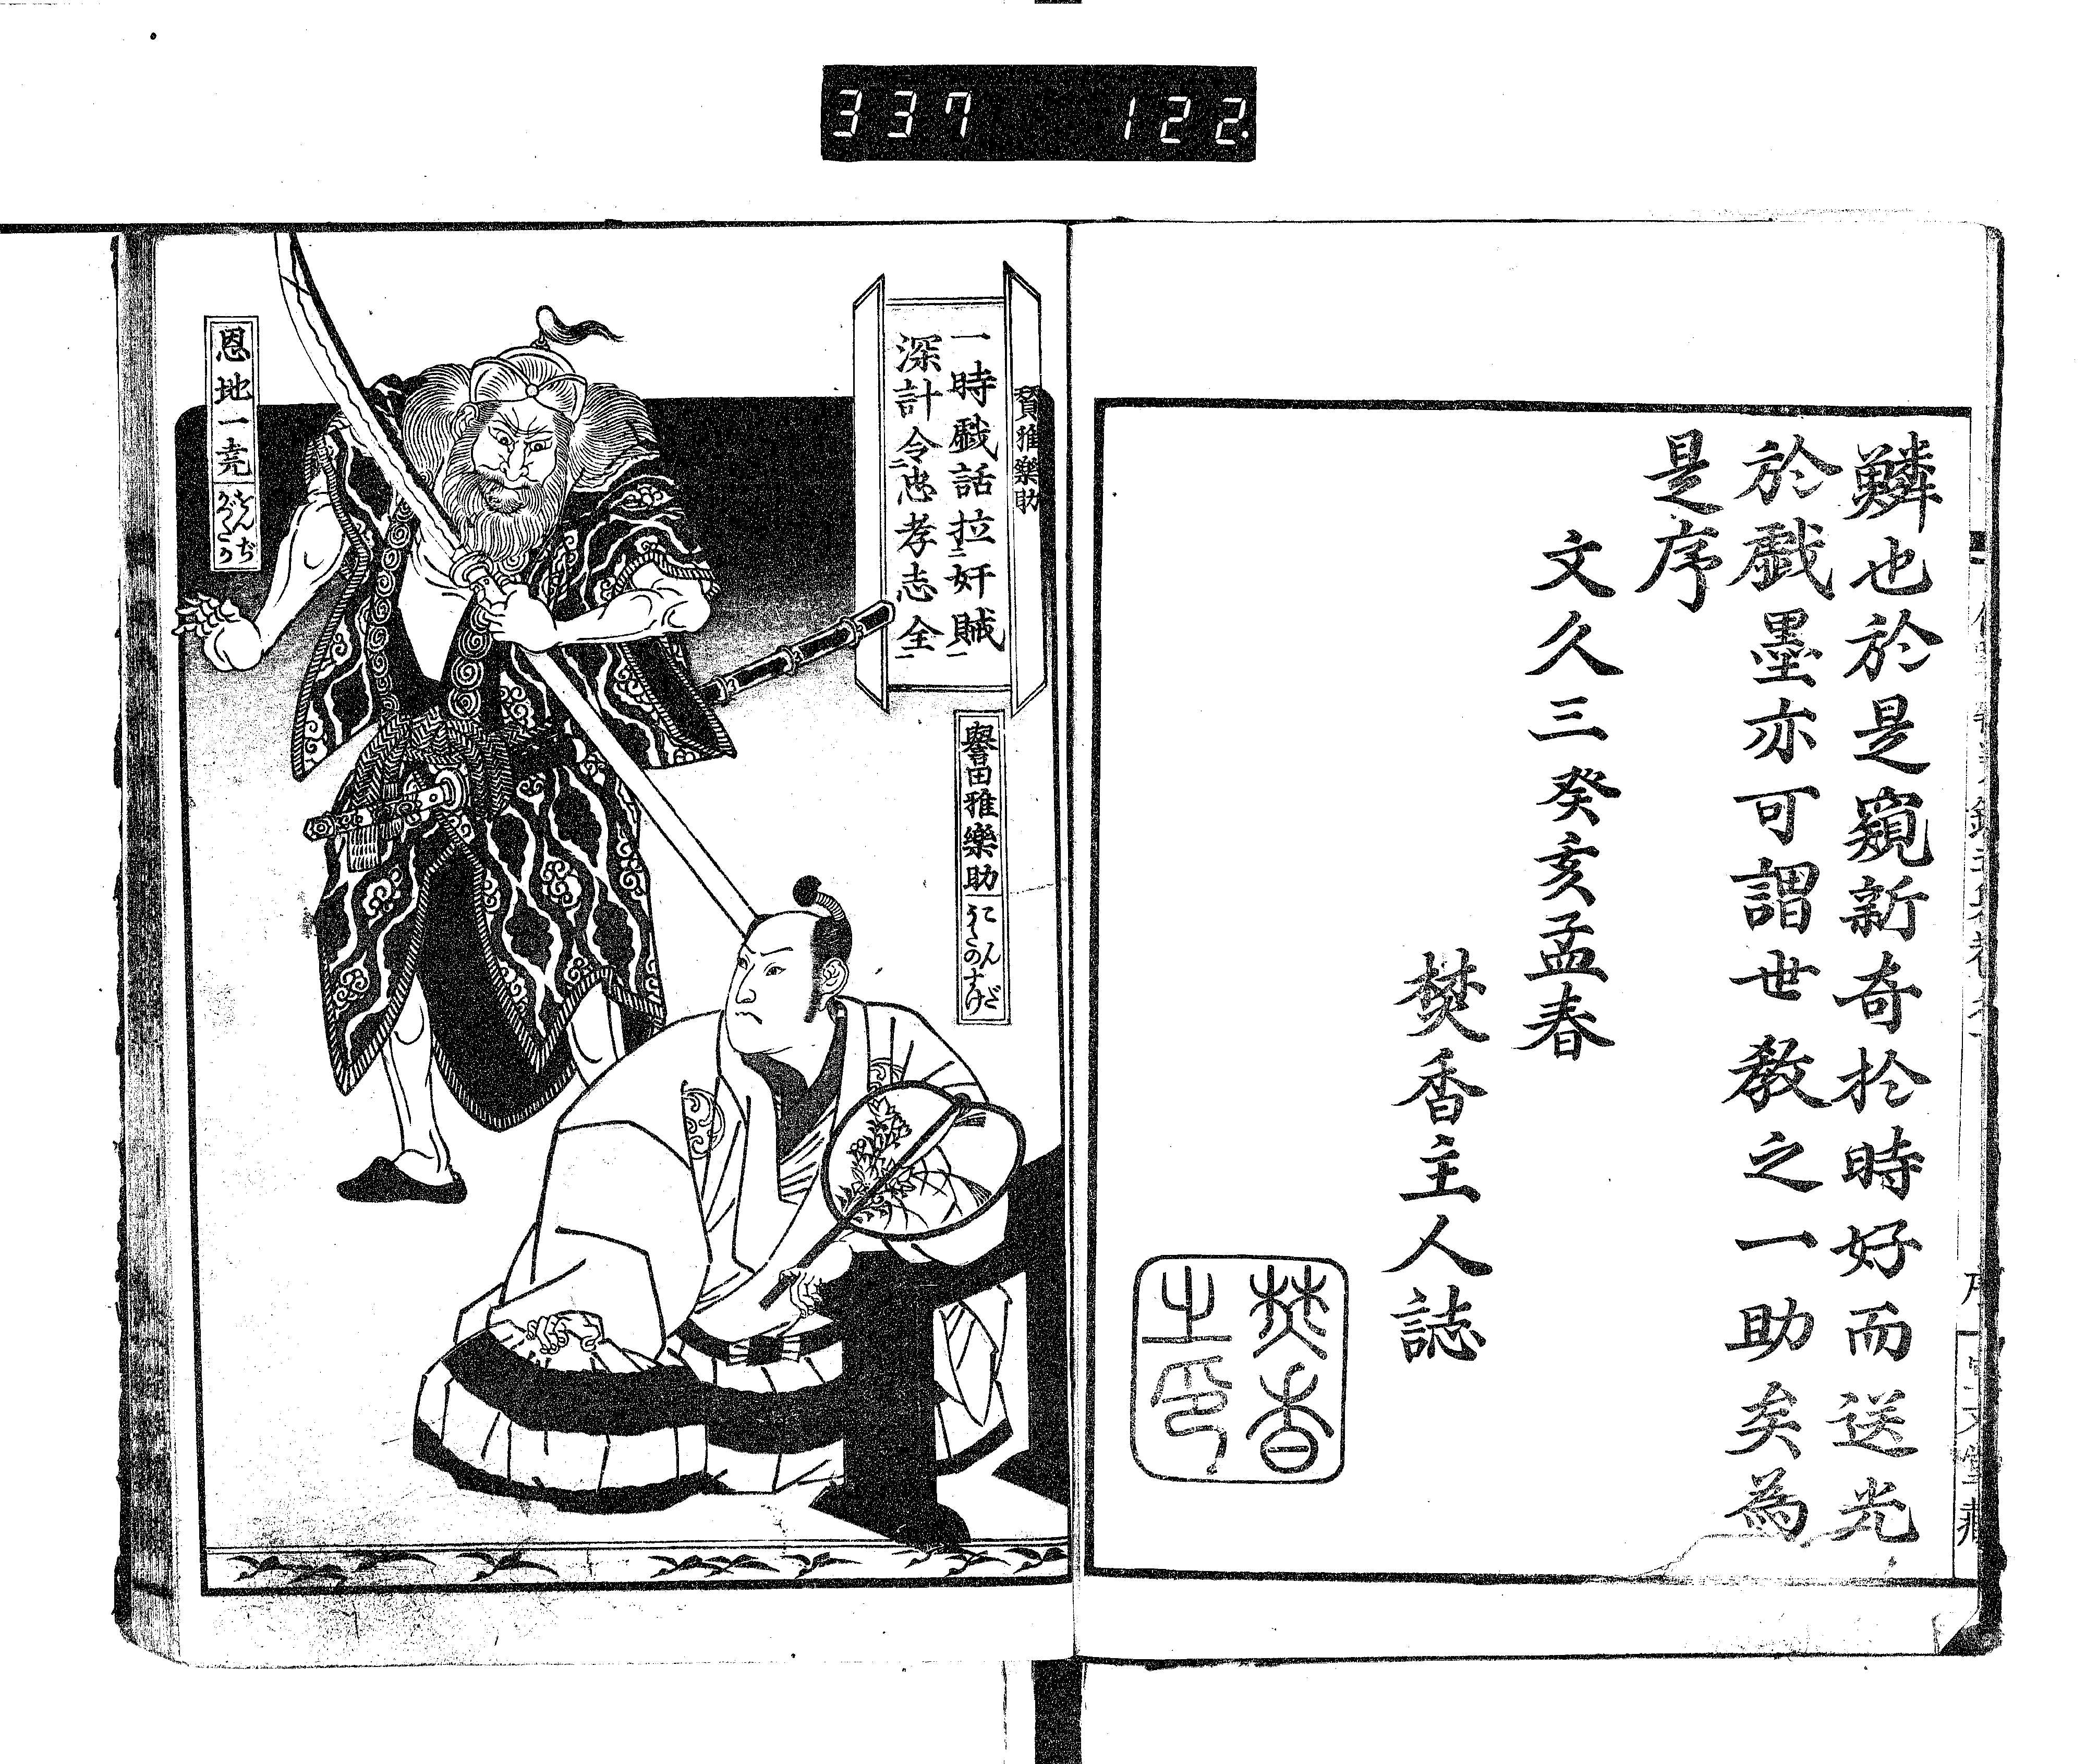 337 122.
鱗也於是窺新奇於時好而送光
於戯墨亦可謂世教之一助矣為
是序
文久三癸亥孟春
焚香主人誌
焚香
之印
賛雅樂助
一時戯話拉二奸賊一
深計令二忠孝志全一
譽田雅樂助
こんだ
うたのすけ
恩地一堯
おんぢ